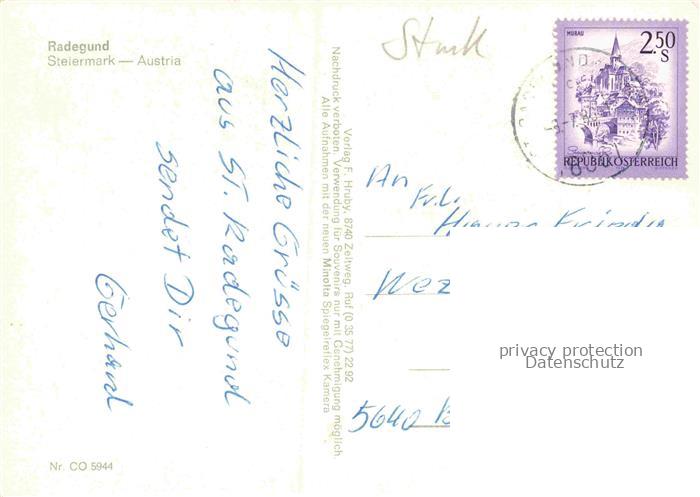 Radegund
Steiermark — Austria
Herzliche Grüsse
aus St. Radegund
sendet Dir
Gerhard
Nr. CO 5944
Verlag F. Hruby, 8740 Zeltweg, Ruf (0 35 77) 22 92
Nachdruck verboten. Verwendung für Souvenirs nur mit Genehmigung möglich.
Alle Aufnahmen mit der neuen Minolta Spiegelreflex Kamera
MURAU
2.50
S
REPUBLIK ÖSTERREICH
An
Frl.
Wez
5640 B
privacy protection
Datenschutz